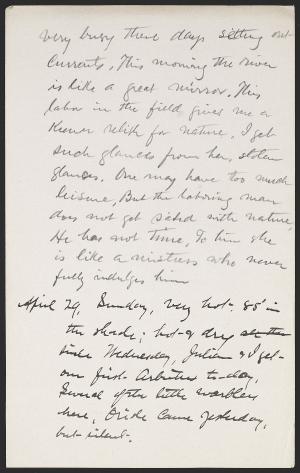 very busy these days setting out
Currants. This morning the river
is like a great mirror. This
labor in the field gives me a
Keener relish for nature. I get
such glances from her, stolen
glances. One may have too much
leisure. But the laboring man
does not get sated with nature,
He has not time. To him she
is like a mistress who never
fully indulges him
April 29, Sunday, very hot. 85° in
the shade; hot & dry
since Wednesday, Julian & I get
our first Arbutus to-day,
Several of the little warblers
here, Oriole came yesterday,
but silent.